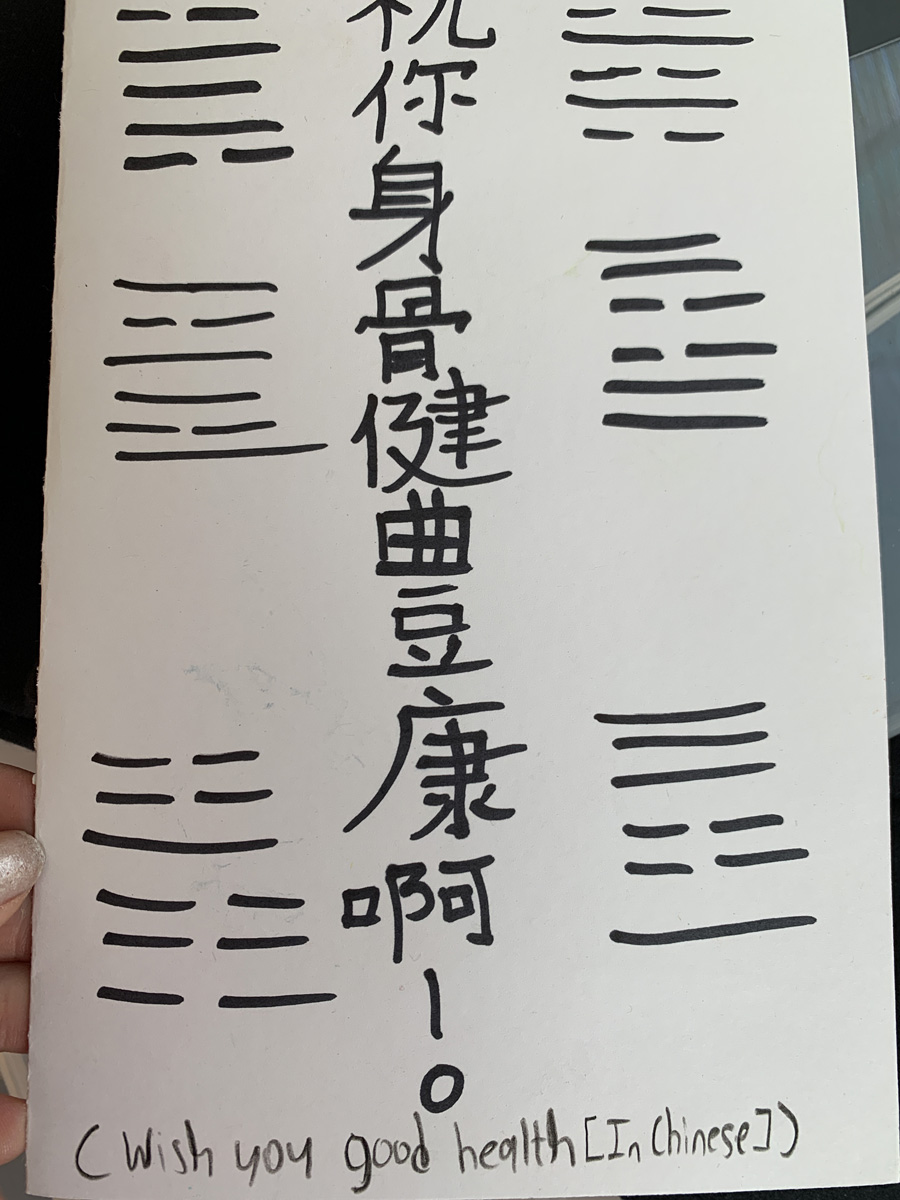 祝你身骨健曲豆康啊！
(Wish you good health [In Chinese])